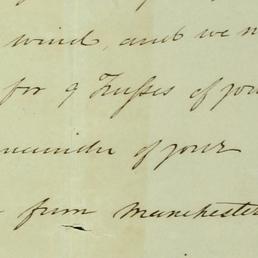 wind, and we
for 9 Trusses of your
remainder of your
from Manchester